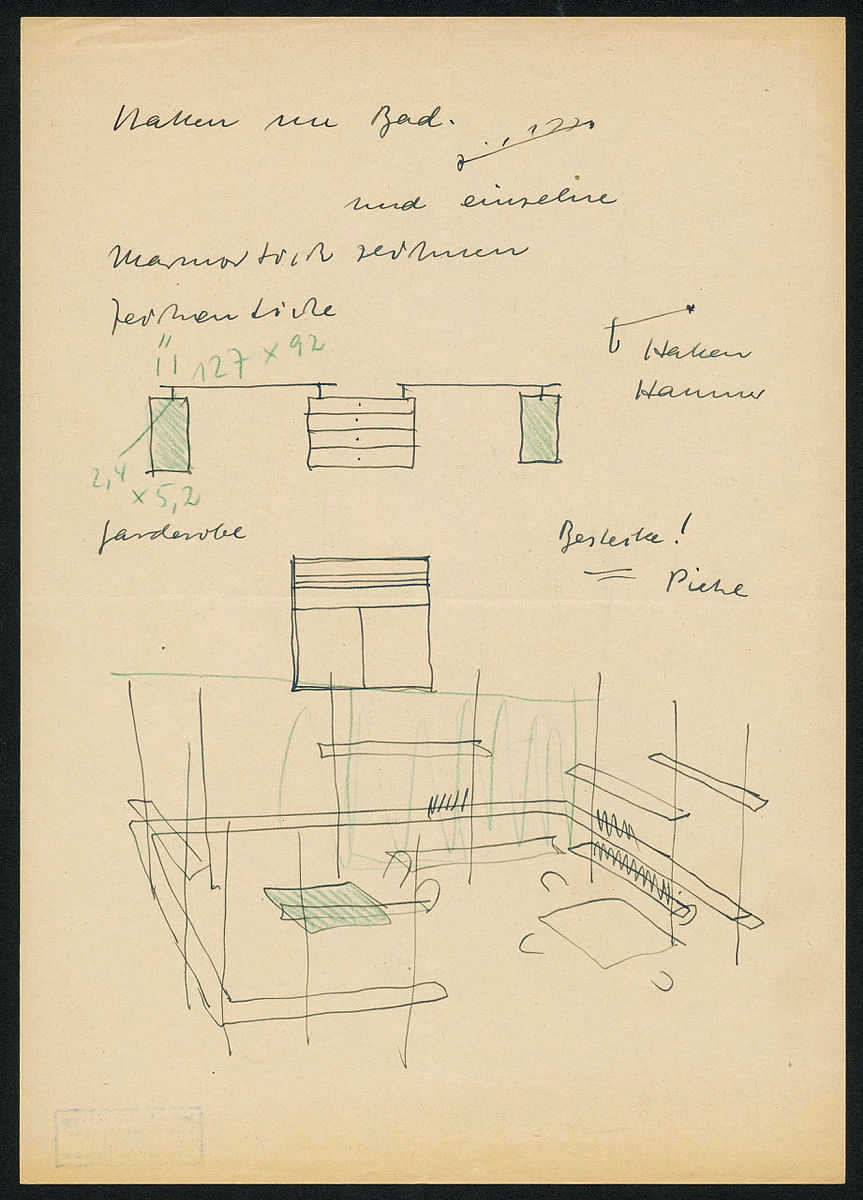 Haken im Bad.
und einzelne
Marmortisch zeichnen
Zeichentische
127 × 92
Haken
Hammer
2,4
× 5,2
Garderobe
Bestecke!